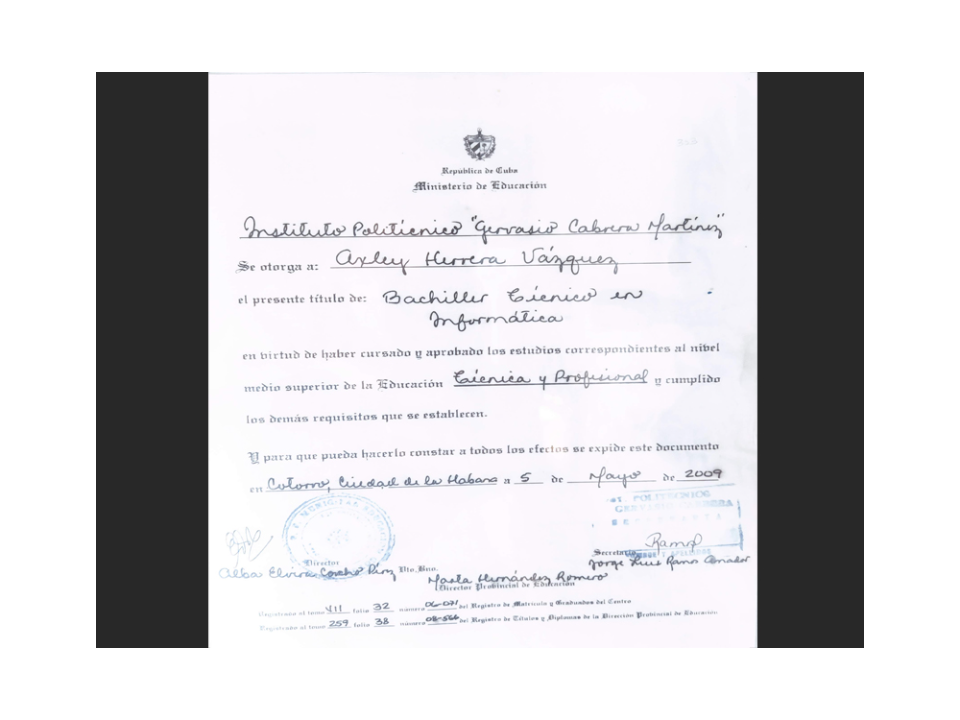 República de Cuba
Ministerio de Educación
Instituto Politécnico "Gervasio Cabrera Martínez"
Se otorga a: Axley Herrera Vázquez
el presente título de: Bachiller Técnico en
Informática
en virtud de haber cursado y aprobado los estudios correspondientes al nivel
medio superior de la Educación Técnica y Profisional y cumplido
los demás requisitos que se establecen.
Y para que pueda hacerlo constar a todos los efectos se expide este documento
en Cotorro, Ciudad de la Habana a 5 de Mayo de 2009
POLITECNICO
GERVASIO CABRERA
SECRETARIA
Ramos
Director
Secretario
Alba Elvira Concho Pérez Vto. Bno. Marta Hernández Romero
Jorge Luis Ramos
Director Provincial de Educación
Registrado al tomo VII folio 32 número 06-071 del Registro de Matrícula y Graduados del Centro
Registrado al tomo 259 folio 38 número 08-566 del Registro de Títulos y Diplomas de la Dirección Provincial de Educación